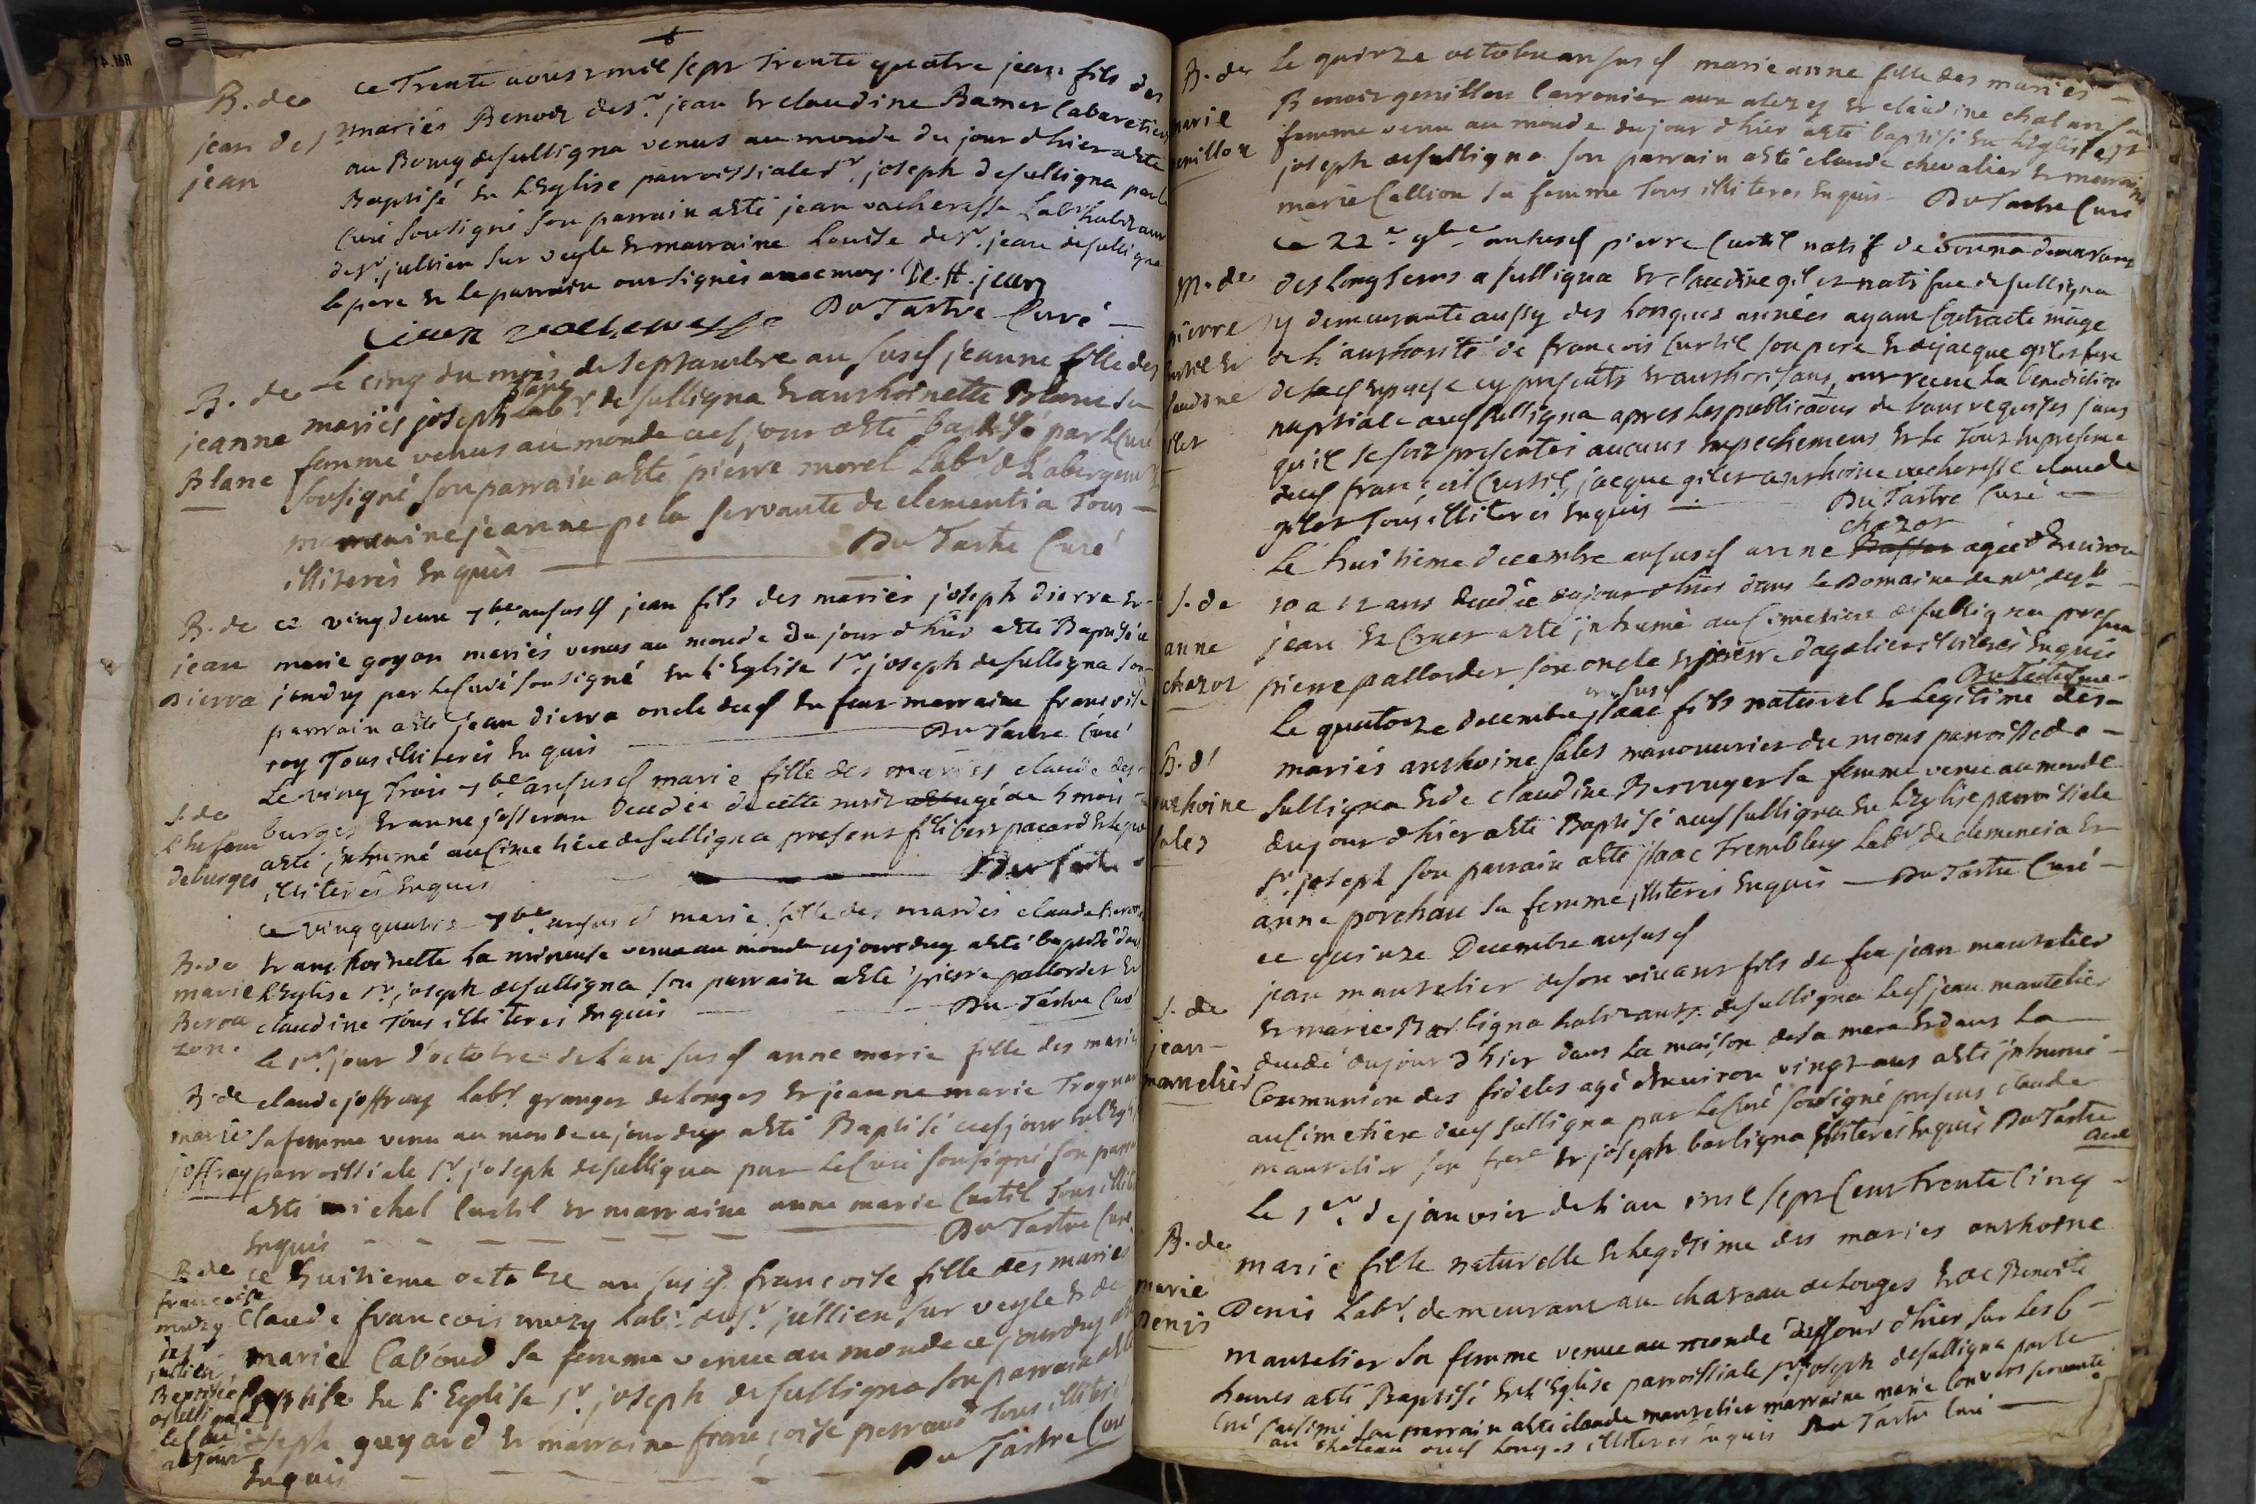 B. de
jean de s
jean
ce Trente aoust mil sept Trente quatre jean fils des
mariés Benoit de st. jean et claudine Bamet Cabaretiers
au Bourg de sulligna venus au monde du jour d hier a esté
Baptisé en L'Eglise parroissiale st. joseph de sulligna par le
Curé sousigné son parrain a esté jean vacheresse Labr habitant
de st. jullien sur veyle et marraine Louise de st. jean de sulligna
le pere et le parrain ont signés avec moy. De. st. jean
jean vacheresse Du Tartre Curé
B. de
jeanne
Blanc
Le cinq du mois de septambre an susd jeanne fille des
mariés joseph blanc Labr. de sulligna et anthoinette Blanc sa
femme venus au monde cesd jour a esté baptisé par Le Curé
sousigné son parrain a esté pierre morel Labr de Labergem
marraine jeanne pela servante de clementia Tous
illiterés Enquis Du Tartre Curé
B. de
jean
Dierra
ce vingdeux 7bre an susd jean fils des mariés joseph dierra et
marie goyon mariés venus au monde du jour d hier a esté Baptisé ce
jourduy par Le Curé sousigné en L'Eglise st. joseph de sulligna son
parrain a esté jean dierra oncle dud Enfant marraine francoise
roy Tous illiterés Enquis Du Tartre Curé
S. de
L'enfant
deburges
Le ving Trois 7bre an susd marie fille des mariés claude des
burges et anne josseran decedée de cette nuit agée de 5 mois
a esté Inhumé au Cimetière de sulligna presens filibert pacard et
illiterés Enquis Du Tartre
B. de
marie
Berou
zon.
ce ving quatre 7bre an susd marie fille des mariés claude Berou
et anthoinette La mineuse venue au monde ce jourduy a esté baptisé dans
L'Eglise st. joseph de sulligna son parrain a esté pierre pallordet et
claudine Tous illiterés Enquis Du Tartre Curé
B. de
marie
joffray
Le 1er. jour d'octobre de L'an susd anne marie fille des mariés
claude joffray Labr. granger de Longes et jeanne marie Trognon
sa femme venu au monde ce jourduy a esté Baptisé cesd jour en L'Eglise
parroissiale st. joseph de sulligna par Le Curé sousigné son parrain
a esté michel Curtil et marraine anne marie Curtil Tous illiterés
Enquis Du Tartre Curé
B. de
francoise
muzy
de st
jullien
Baptisée
a sulligna
ce huitieme octobre an susd francoise fille des mariés
claude francois muzy Labr. de st. jullien sur veyle et de
marie Caboud sa femme venue au monde ce jourduy
Baptisé en L'Eglise st. joseph de sulligna son parrain a esté
joseph guyard et marraine francoise perraud Tous illiterés
Enquis Du Tartre Curé
B. de
marie
genillon
Le quinze octobre an susd marie anne fille des mariés
Benoit genillon Carronier aux alezes et claudine chalan sa
femme venu au monde du jour d hier a esté baptisé en L'Eglise st
joseph de sulligna son parrain a esté claude chevalier et marraine
marie Callion sa femme Tous illiteres Enquis Du Tartre Curé
M. de
pierre
Curtil et
claudine
gilet
ce 22e 9bre an susd pierre Curtil natif de vonna demeurant
des Longtems a sulligna et claudine gilet natifue de sulligna
y demeurante aussy des Longues années ayant Contracte
de L'authorité de francois Curtil son pere et de jacque gilet pere
de lad Epouse cy presents et authorisans, ont receu La benediction
nuptiale aud sulligna apres Les publications de bans requises sans
qu'il se soit presentés aucuns Empechemens et le Tout En presence
dud francois Curtil, jacque gilet anthoine vacheresse claude
gilet Tous illiterés Enquis Du Tartre Curé
S. de
anne
chazot
chazot
Le huitieme decembre an susd anne agée d Environ
10 a 12 ans decedée du jour d hier dans Le Domaine de mr. de st
jean et a esté Inhumé au Cimetiere de sulligna presens
pierre pallordet son oncle et pierre dagalier illiterés Enquis
Du Tartre Curé
B. d'
anthoine
sales
Le quatorze decembre an susd, isaac fils naturel et Legitime des
mariés anthoine sales manouvrier du mons parroisse de
sulligna et de claudine Berruyer sa femme venu au monde
du jour d hier a esté Baptisé aud sulligna en L'Eglise parroissiale
st. joseph son parrain a esté isaac Tremblay Labr de clemencia et
anne porchau sa femme illiterés Enquis Du Tartre Curé
S. de
jean
mantelier
ce quinze Decembre an susd
jean mantelier de son vivant fils de feu jean mantelier
et marie Barligna habitants. de sulligna Led jean mantelier
decedé du jour d hier dans La maison de sa mere et dans La
Communion des fideles agé d'Environ vingt ans a esté Inhumé
au Cimetiere dud sulligna par Le Curé sousigné presens claude
mantelier son frere et joseph barligna illiterés Enquis Du Tartre
Curé
B. de
marie
Denis
Le 1er. de janvier de L'an mil sept Cent Trente Cinq
marie fille naturelle et Legitime des mariés anthoine
Denis Labr. demeurant au chateau de Longes et de Benoite
mantelier sa femme venue au monde du jour d hier sur Les 6
heures a esté Baptisé En L'Eglise parroissiale st. joseph de sulligna par le
Curé sousigné son parrain a esté claude mantelier marraine marie Convers servante
au chateau dud Longes illiterés Enquis Du Tartre Curé